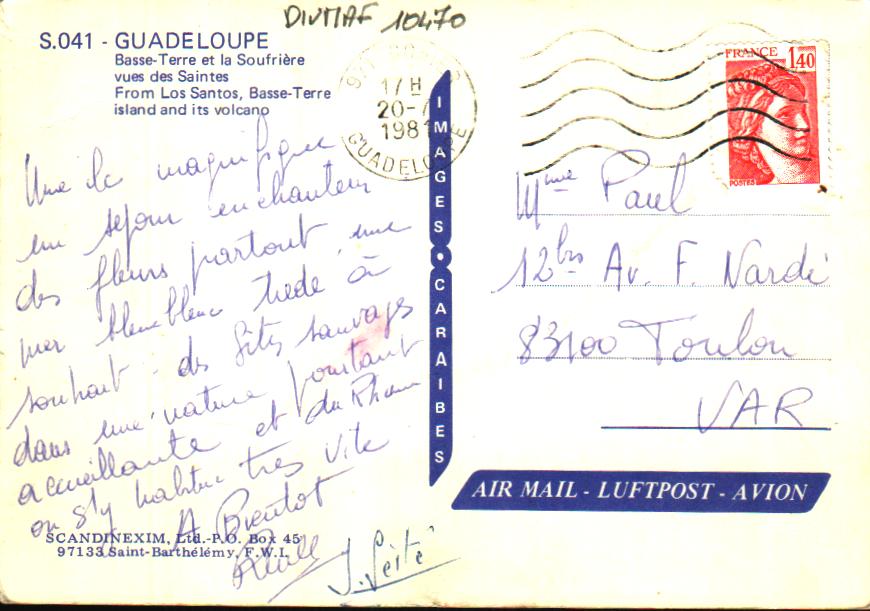 DIVMAF 10470
S.041 - GUADELOUPE
Basse-Terre et la Soufrière
vues des Saintes
From Los Santos, Basse-Terre
island and its volcano
17 H
20-7
1981
GUADELOUPE
FRANCE 1,40
POSTES
IMAGES • CARAIBES
Une île magnifique
un séjour enchanteur
des fleurs partout, une
mer bleu bleu tiède à
souhait - des sauvages
dans une nature pourtant
accueillante et du Rhum
on s'y habitue très vite
A Bientôt
J.
Mme Paul
12bis Av. F. Nardi
83100 Toulon
VAR
AIR MAIL - LUFTPOST - AVION
SCANDINEXIM, Ltd.-P.O. Box 45
97133 Saint-Barthélémy, F.W.I.